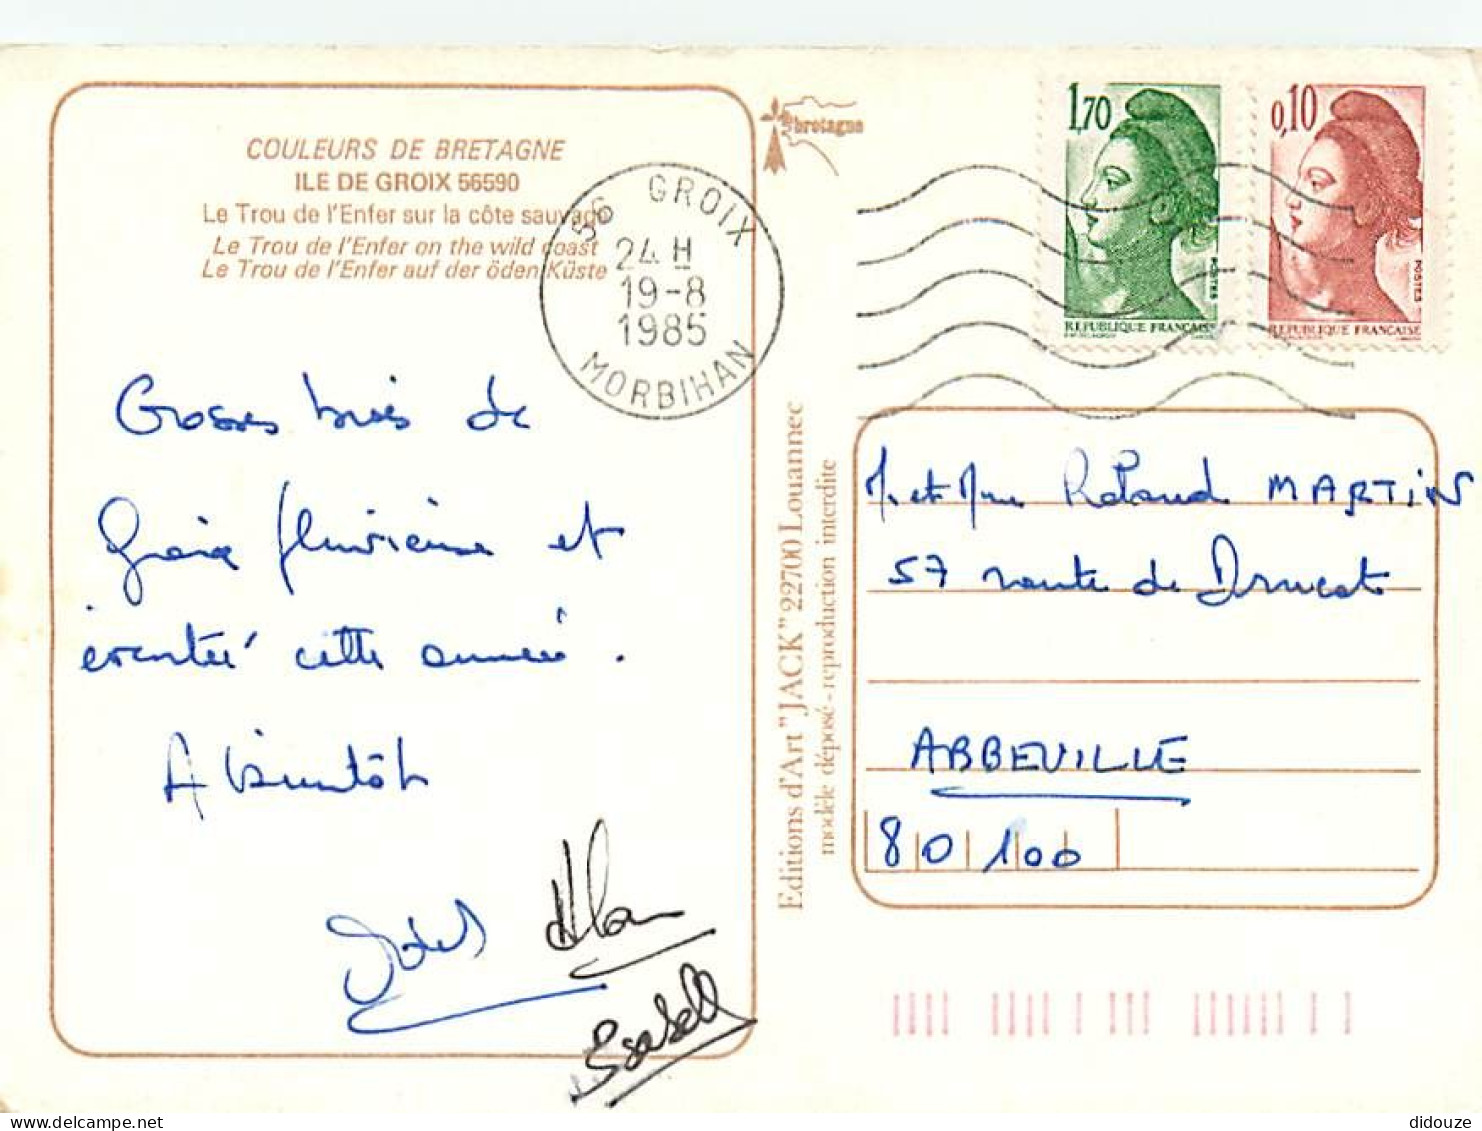 COULEURS DE BRETAGNE
ILE DE GROIX 56590
Le Trou de l'Enfer sur la côte sauvage
Le Trou de l'Enfer on the wild coast
Le Trou de l'Enfer auf der öden Küste
bretagne
56 GROIX
24 H
19-8
1985
MORBIHAN
1,70
POSTES
REPUBLIQUE FRANCAISE
0,10
POSTES
REPUBLIQUE FRANCAISE
Grosses bises de
Groix pluvieuse et
éventée cette année.
A bientôt
Alan
Isabelle
Editions d'Art "JACK" 22700 Louannec
modèle déposé - reproduction interdite
M. et Mme Roland MARTIN
57 route de Drucat
ABBEVILLE
80100
didouze